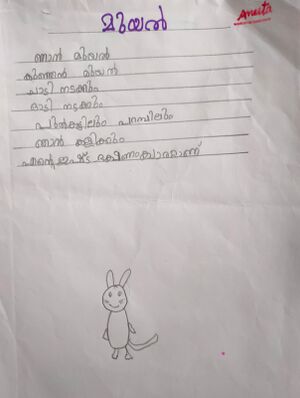 മുയൽ
Aneeta
ഞാൻ മുയൽ
കുഞ്ഞൻ മുയൽ
ചാടി നടക്കും
ഓടി നടക്കും
പുൽക്കാട്ടിലും പറമ്പിലും
ഞാൻ കളിക്കും
എന്റെ ഇഷ്ട ഭക്ഷണം ക്യാരറ്റാണ്